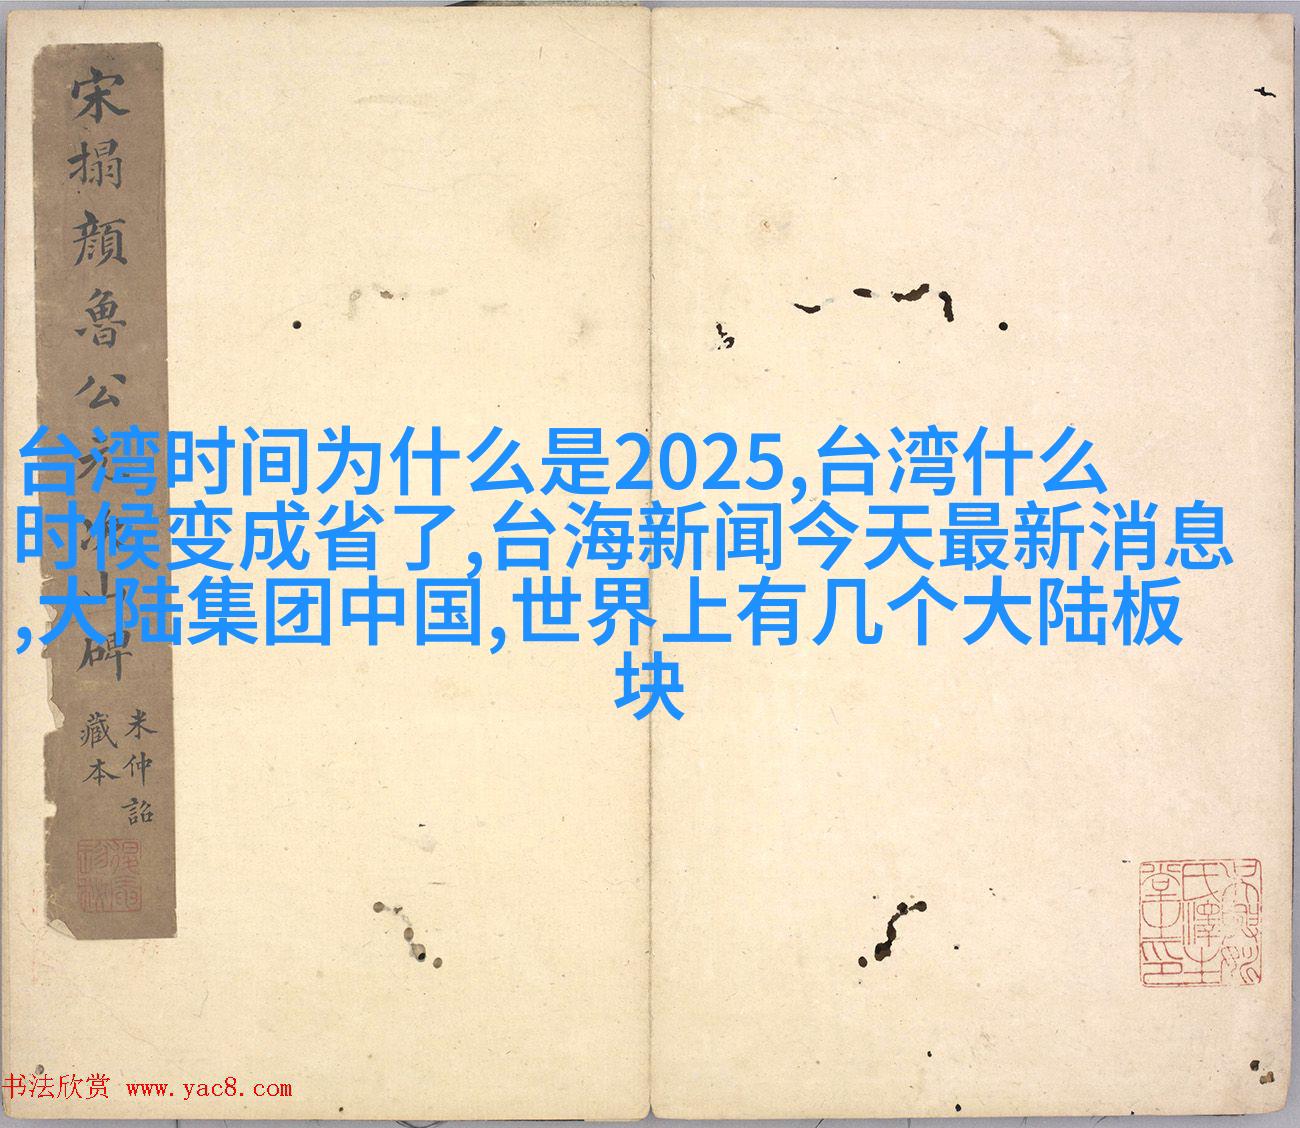 宋搨顔魯公
碑
米仲詔
藏本
台湾时间为什么是2025,台湾什么
时候变成省了,台海新闻今天最新消息
,大陆集团中国,世界上有几个大陆板
块
书法欣赏 www.yac8.com